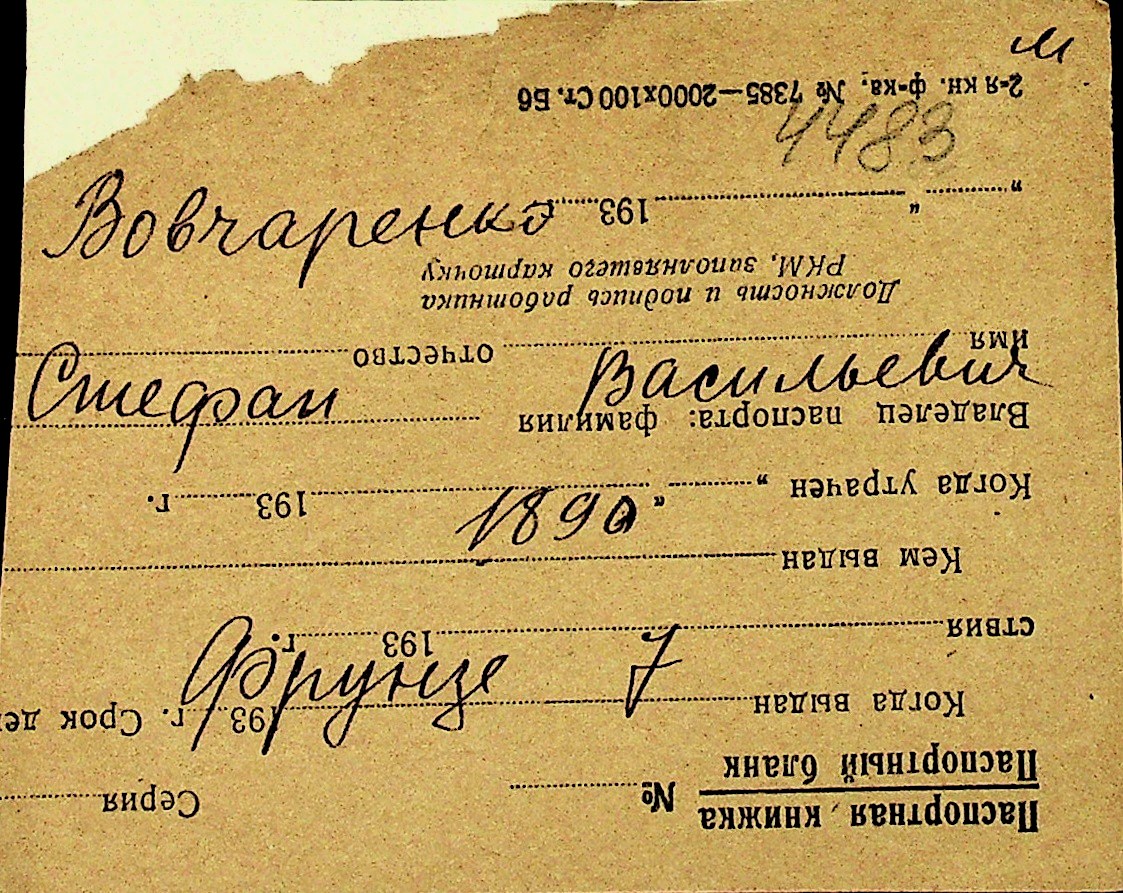 м
4483
Вовчаренко
Стефан Васильевич
1890
Фрунзе 7
Паспортная книжка № Серия
Паспортный бланк
Когда выдан 193 г. Срок де
ствия 193 г.
Кем выдан
Когда утрачен „ “ 193 г.
Владелец паспорта: фамилия
имя отчество
Должность и подпись работника
РКМ, заполнявшего карточку
„ “ 193 г.
2-я кн. ф-ка, № 7385—2000х100 Ст. Б6